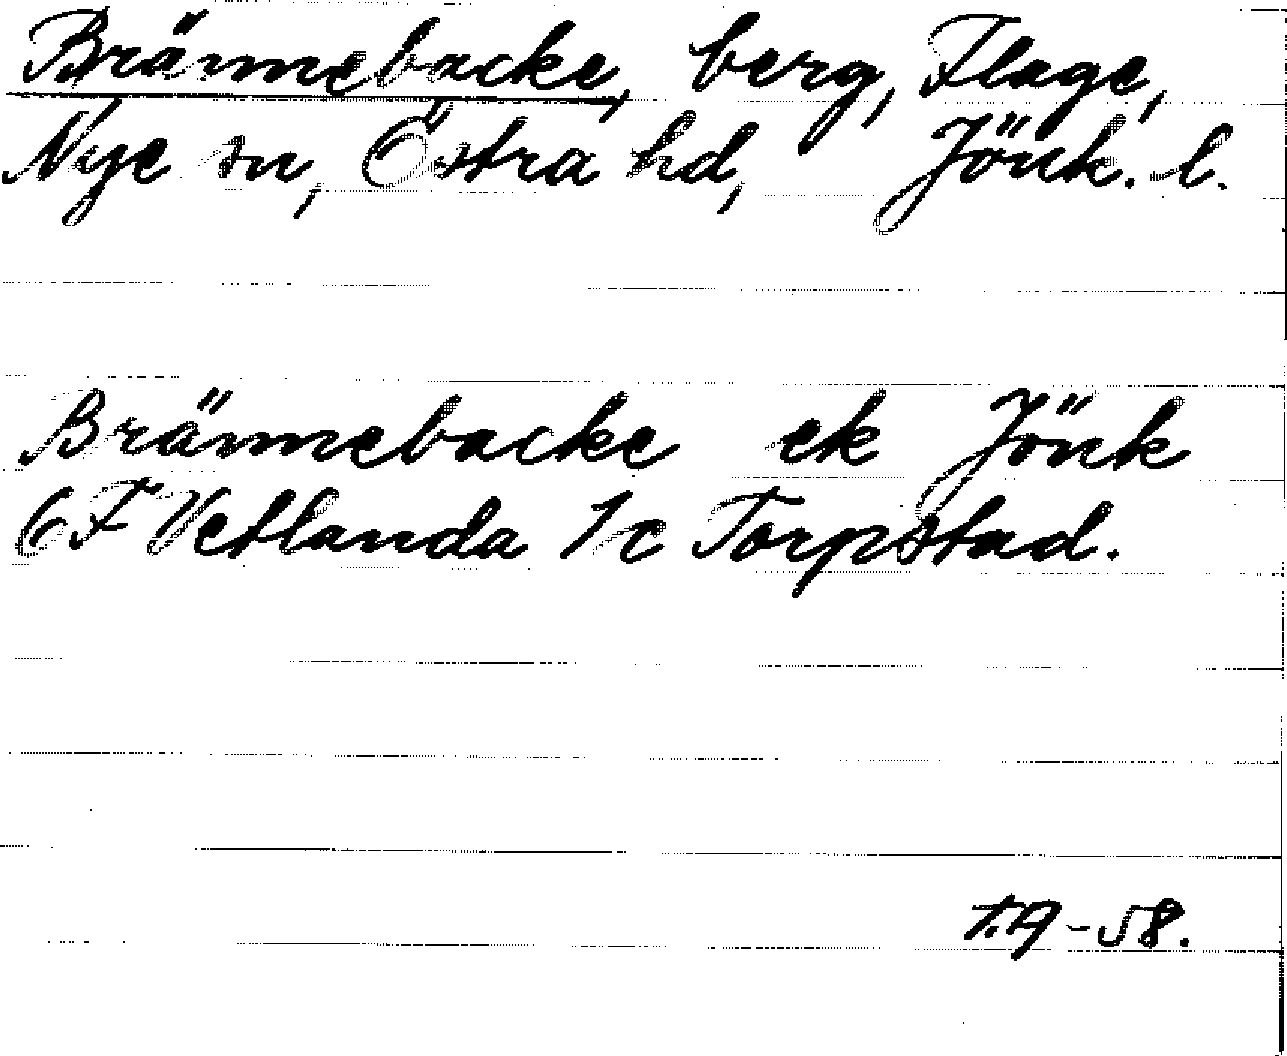 Brännebacke, berg, Flage,
Nye sn, Östra hd, Jönk. l.
Brännebacke ek Jönk
6F Vetlanda 1c Torpstad.
-58.